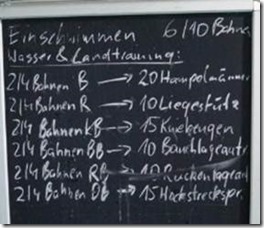 Einschwimmen 6/10 Bahnen
Wasser & Landtraining:
2/4 Bahnen B → 20 Hampelmänner
2/4 Bahnen R → 10 Liegestütz
2/4 Bahnen KB → 15 Kniebeugen
2/4 Bahnen BB → 10 Bauchlageauf
2/4 Bahnen RB → 10 Rückenlageauf
2/4 Bahnen DB → 15 Hockstreckspr.